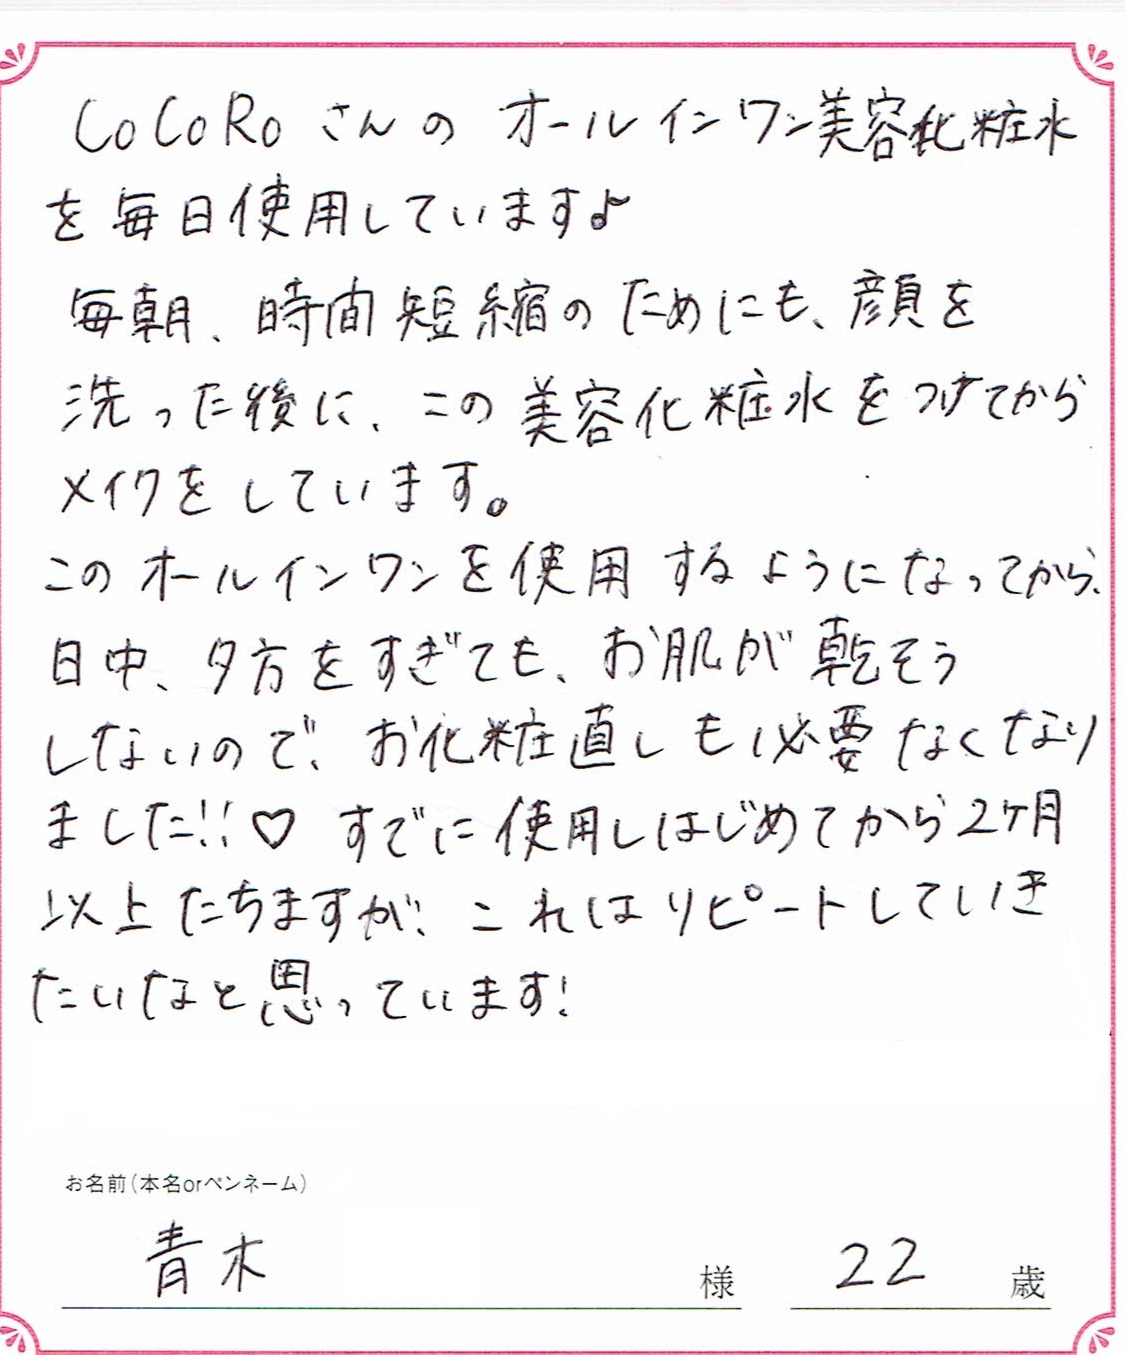 CoCoRoさんのオールインワン美容化粧水
を毎日使用しています♪
毎朝、時間短縮のためにも、顔を
洗った後に、この美容化粧水をつけてから
メイクをしています。
このオールインワンを使用するようになってから、
日中、夕方をすぎても、お肌が乾そう
しないので、お化粧直しも必要なくなり
ました!!♡ すでに使用しはじめてから2ケ月
以上たちますが、これはリピートしていき
たいなと思っています!
お名前(本名orペンネーム)
青木 様 22 歳